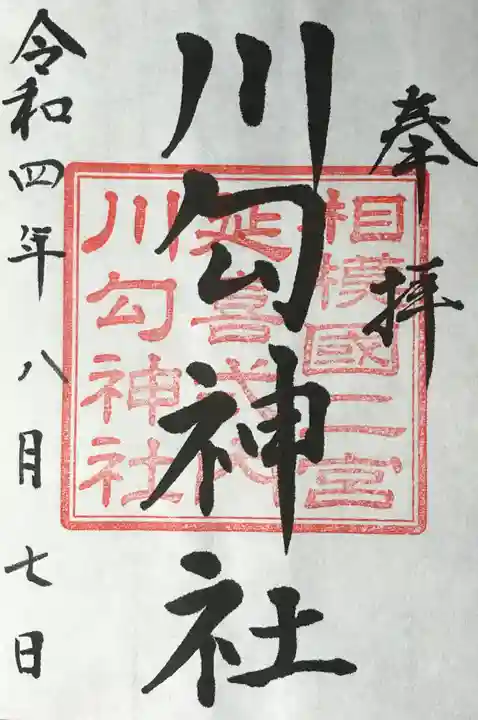 奉拝
川勾神社
令和四年八月七日
相模國二宮
延喜式内
川勾神社